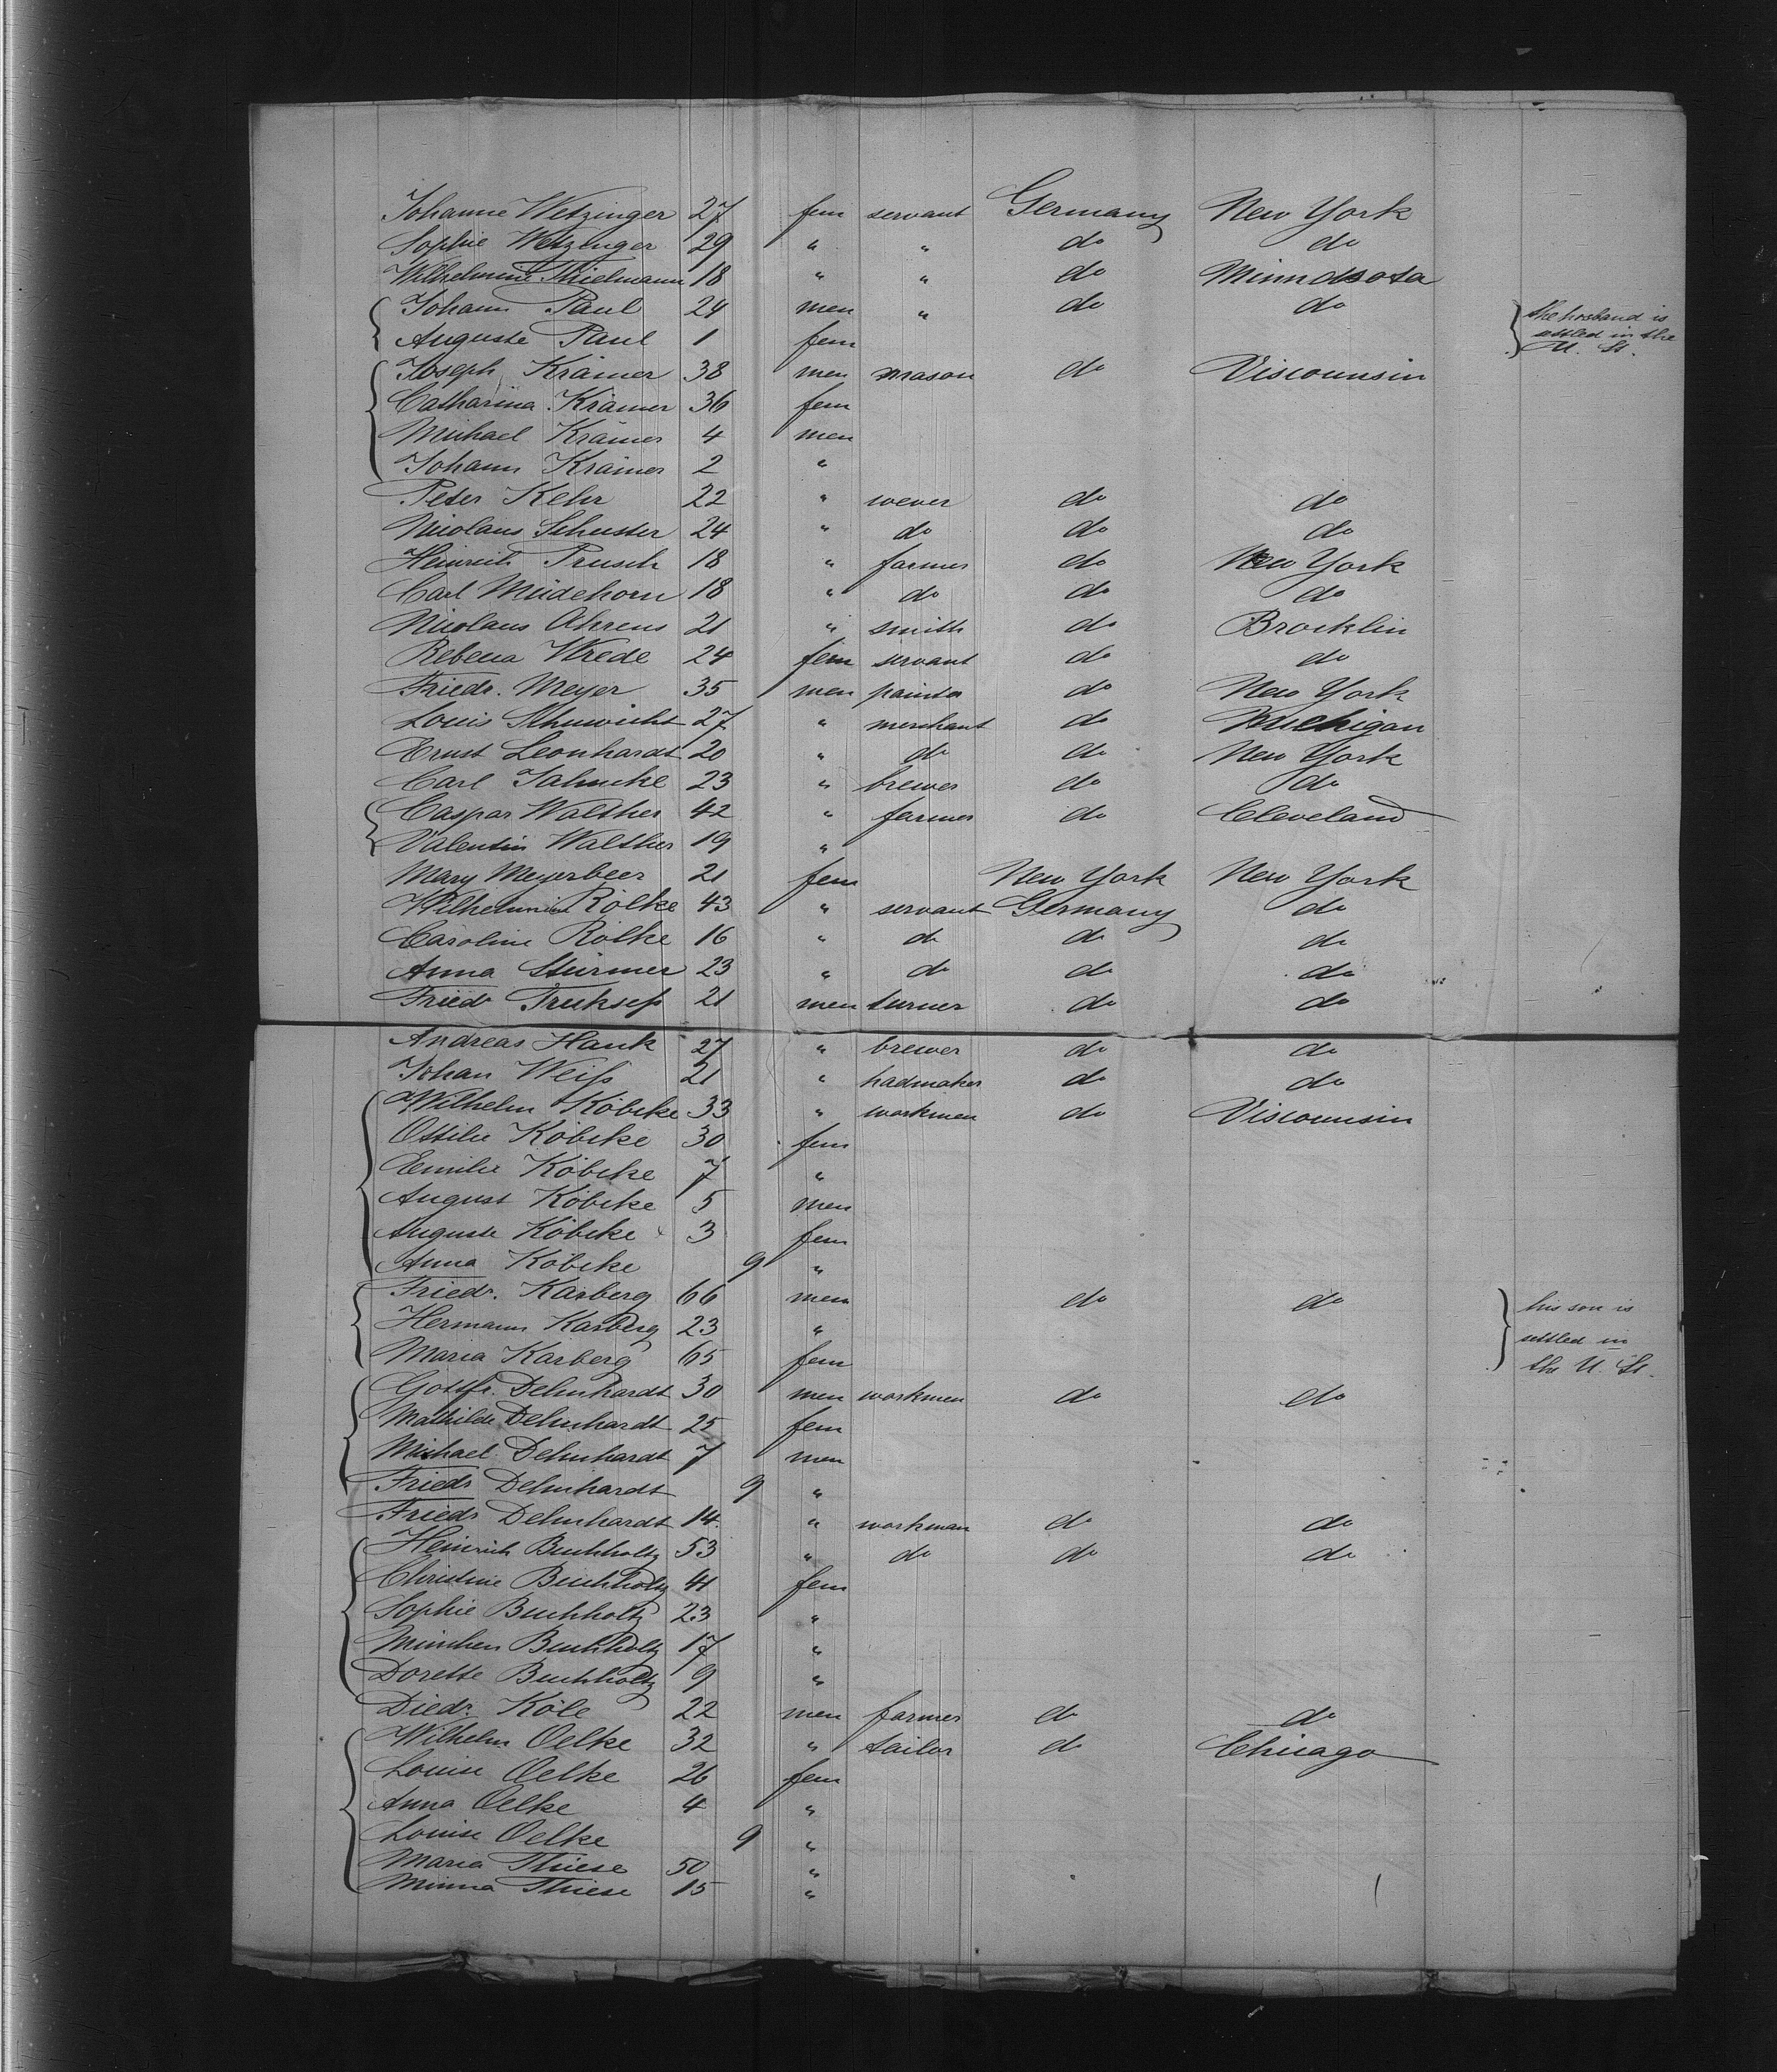 Johanne Wetzinger 27 fem servant Germany New York
Sophie Wetzinger 29 " " do do
Wilhelmine Thielmann 18 " " do Minndsota
Johann Paul 24 men " do do
Auguste Paul 1 fem
the hosband is
settled in the
U. St.
Joseph Krämer 38 men mason do Viscounsin
Catharina Krämer 36 fem
Michael Krämer 4 men
Johann Krämer 2 "
Peter Kehr 22 " wever do do
Nicolaus Schuster 24 " do do do
Heinrich Prusch 18 " farmer do New York
Carl Müdehorn 18 " do do do
Nicolaus Ahrens 21 " smith do Brocklin
Rebecca Wrede 24 fem servant do do
Friedr. Meyer 35 men painter do New York
Louis 27 " merchant do Muchigan
Ernst Leonhardt 20 " do do New York
Carl Jahncke 23 " brewer do do
Caspar Walther 42 " farmer do Cleveland
Valentin Walther 19 "
Mary Meyerbeer 21 fem New York New York
Wilhelmine Rölke 43 " servant Germany do
Caroline Rölke 16 " do do do
Anna Stürmer 23 " do do do
Friedr Truksess 21 men turner do do
Andreas Hauk 27 " brewer do do
Johan Weiss 21 " hadmaker do do
Wilhelm Köbcke 33 " workmen do Viscounsin
Ottilie Köbcke 30 fem
Emilie Köbcke 7 "
August Köbcke 5 men
Auguste Köbcke 3 fem
Anna Köbcke 9 "
Friedr. Karberg 66 men do do
Hermann Karberg 23 "
Maria Karberg 65 fem
his son is
settled in
the U. St.
Gottfr. Dehnhardt 30 men workmen do do
Mathilde Dehnhardt 25 fem
Michael Dehnhardt 7 men
Friedr Dehnhardt 9 "
Friedr Dehnhardt 14 " workman do do
Heinrich Buchholtz 53 " do do do
Christine Buchholtz 41 fem
Sophie Buchholtz 23 "
Minchen Buchholtz 17 "
Dorette Buchholtz 9 "
Diedr. Köle 22 men farmer do do
Wilhelm Oelke 32 " tailor do Chicago
Louise Oelke 26 fem
Anna Oelke 4 "
Louise Oelke 9 "
Maria Thiese 50 "
Minna Thiese 15 "